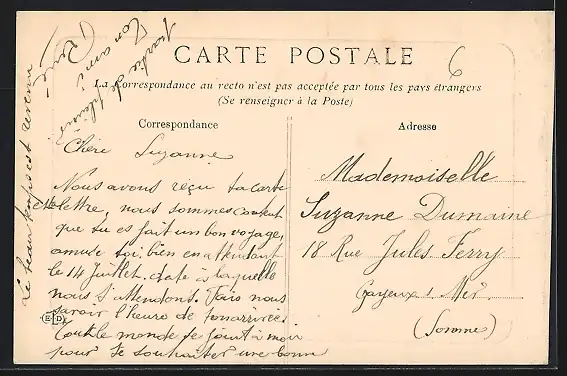 CARTE POSTALE
La Correspondance au recto n'est pas acceptée par tous les pays étrangers
(Se renseigner à la Poste)
Correspondance
Chère Suzanne
Nous avons reçu ta carte
et lettre, nous sommes content
que tu es fait un bon voyage,
amuse toi bien en attendant
le 14 Juillet, date à laquelle
nous t'attendons. Fais nous
savoir l'heure de ton arrivée.
Tout le monde se joint à moi
pour te souhaiter une bonne
partie de plaisir
Ton ami
René
Le beau temps est revenu
E.D
Adresse
Mademoiselle
Suzanne Dumaine
18 Rue Jules Ferry
Cayeux s/ Mer
(Somme)
6